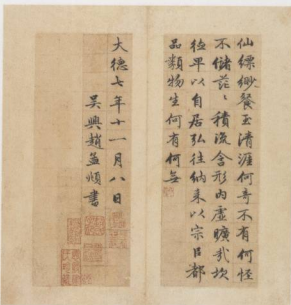 仙縹緲餐玉清涯何奇不有何怪
不儲茫〻積流含形內虛曠哉坎
德卑以自居弘往納來以宗以都
品類物生何有何無
大德七年十一月八日
吳興趙孟頫書